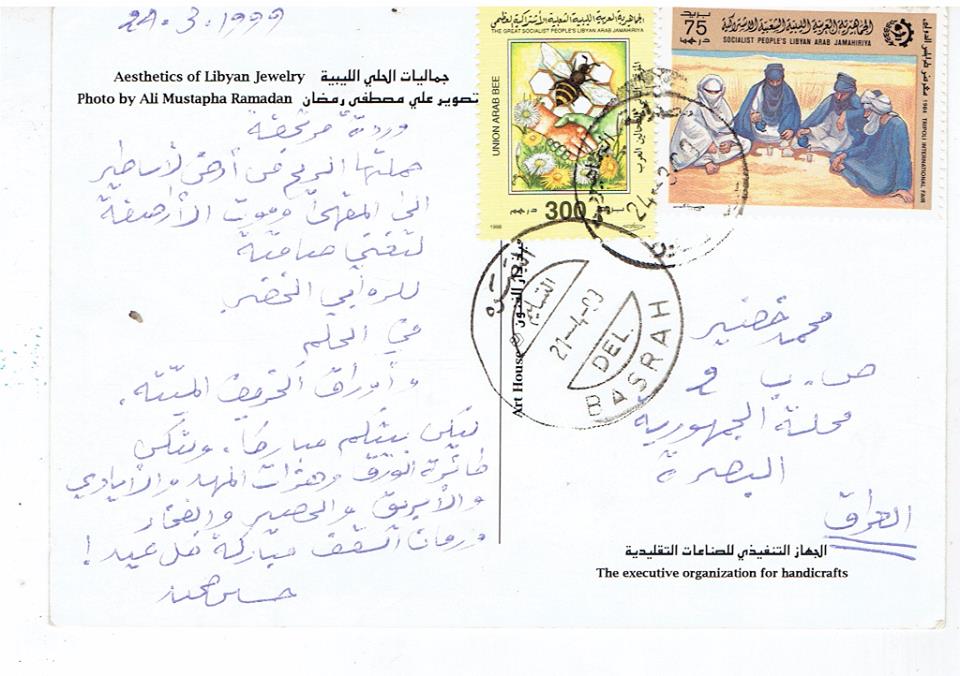 24.3.1999
Aesthetics of Libyan Jewelry جماليات الحلي الليبية
Photo by Ali Mustapha Ramadan تصوير علي مصطفى رمضان
وردة
حملتها الريح من أرض الأساطير
الى المقهى وموت الأرصفة
لتغني صامتة
في الحلم
وأوراق الخريف الميتة.
ليكن بيتكم مباركاً، ولتكن
طائرة الورق وهزات المهد والأيادي
والأبريق والحصير والفخار
ورمان السقف مباركة كل عيد!
UNION ARAB BEE
الجماهيرية العربية الليبية الشعبية الاشتراكية العظمى
THE GREAT SOCIALIST PEOPLE'S LIBYAN ARAB JAMAHIRIYA
300
درهم
1998
بريد
75
درهم
الجماهيرية العربية الليبية الشعبية الاشتراكية
SOCIALIST PEOPLE'S LIBYAN ARAB JAMAHIRIYA
TRIPOLI INTERNATIONAL FAIR
التسليم
21-4-
DEL.
BASRAH
Art House
محمد خضير
ص.ب 9
محلة الجمهورية
البصرة
العراق
الجهاز التنفيذي للصناعات التقليدية
The executive organization for handicrafts